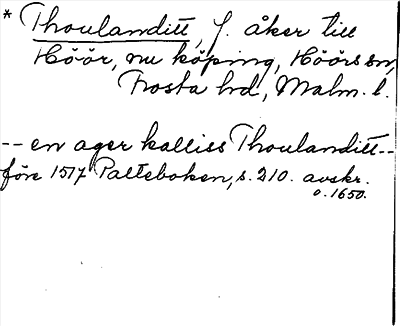 * Thoulanditt, f. åker till
Höör, nu köping, Höörs sn,
Frosta hd, Malm. l.
-- en ager kalliss Thoulanditt--
före 1517 Palteboken, s. 210. avskr.
o. 1650.